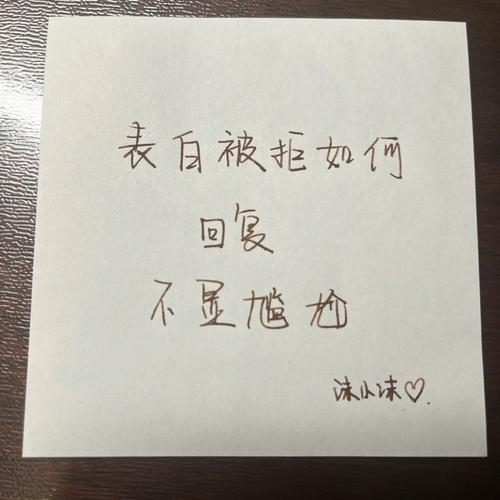 表白被拒如何
回复
不显尴尬
沫小沫♡.